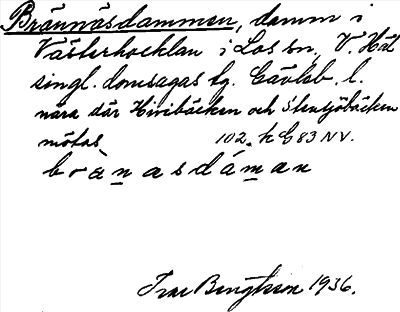 Brännäsdammen, damm i
Västerhocklan i Los sn., V. Häl
singl. domsagas tg. Gävleb. l.
nära där Hivibäcken och Stensjöbäcken
mötas. 102. h G 83 NV.
brànasdáman
Ivar Bengtsson 1936.